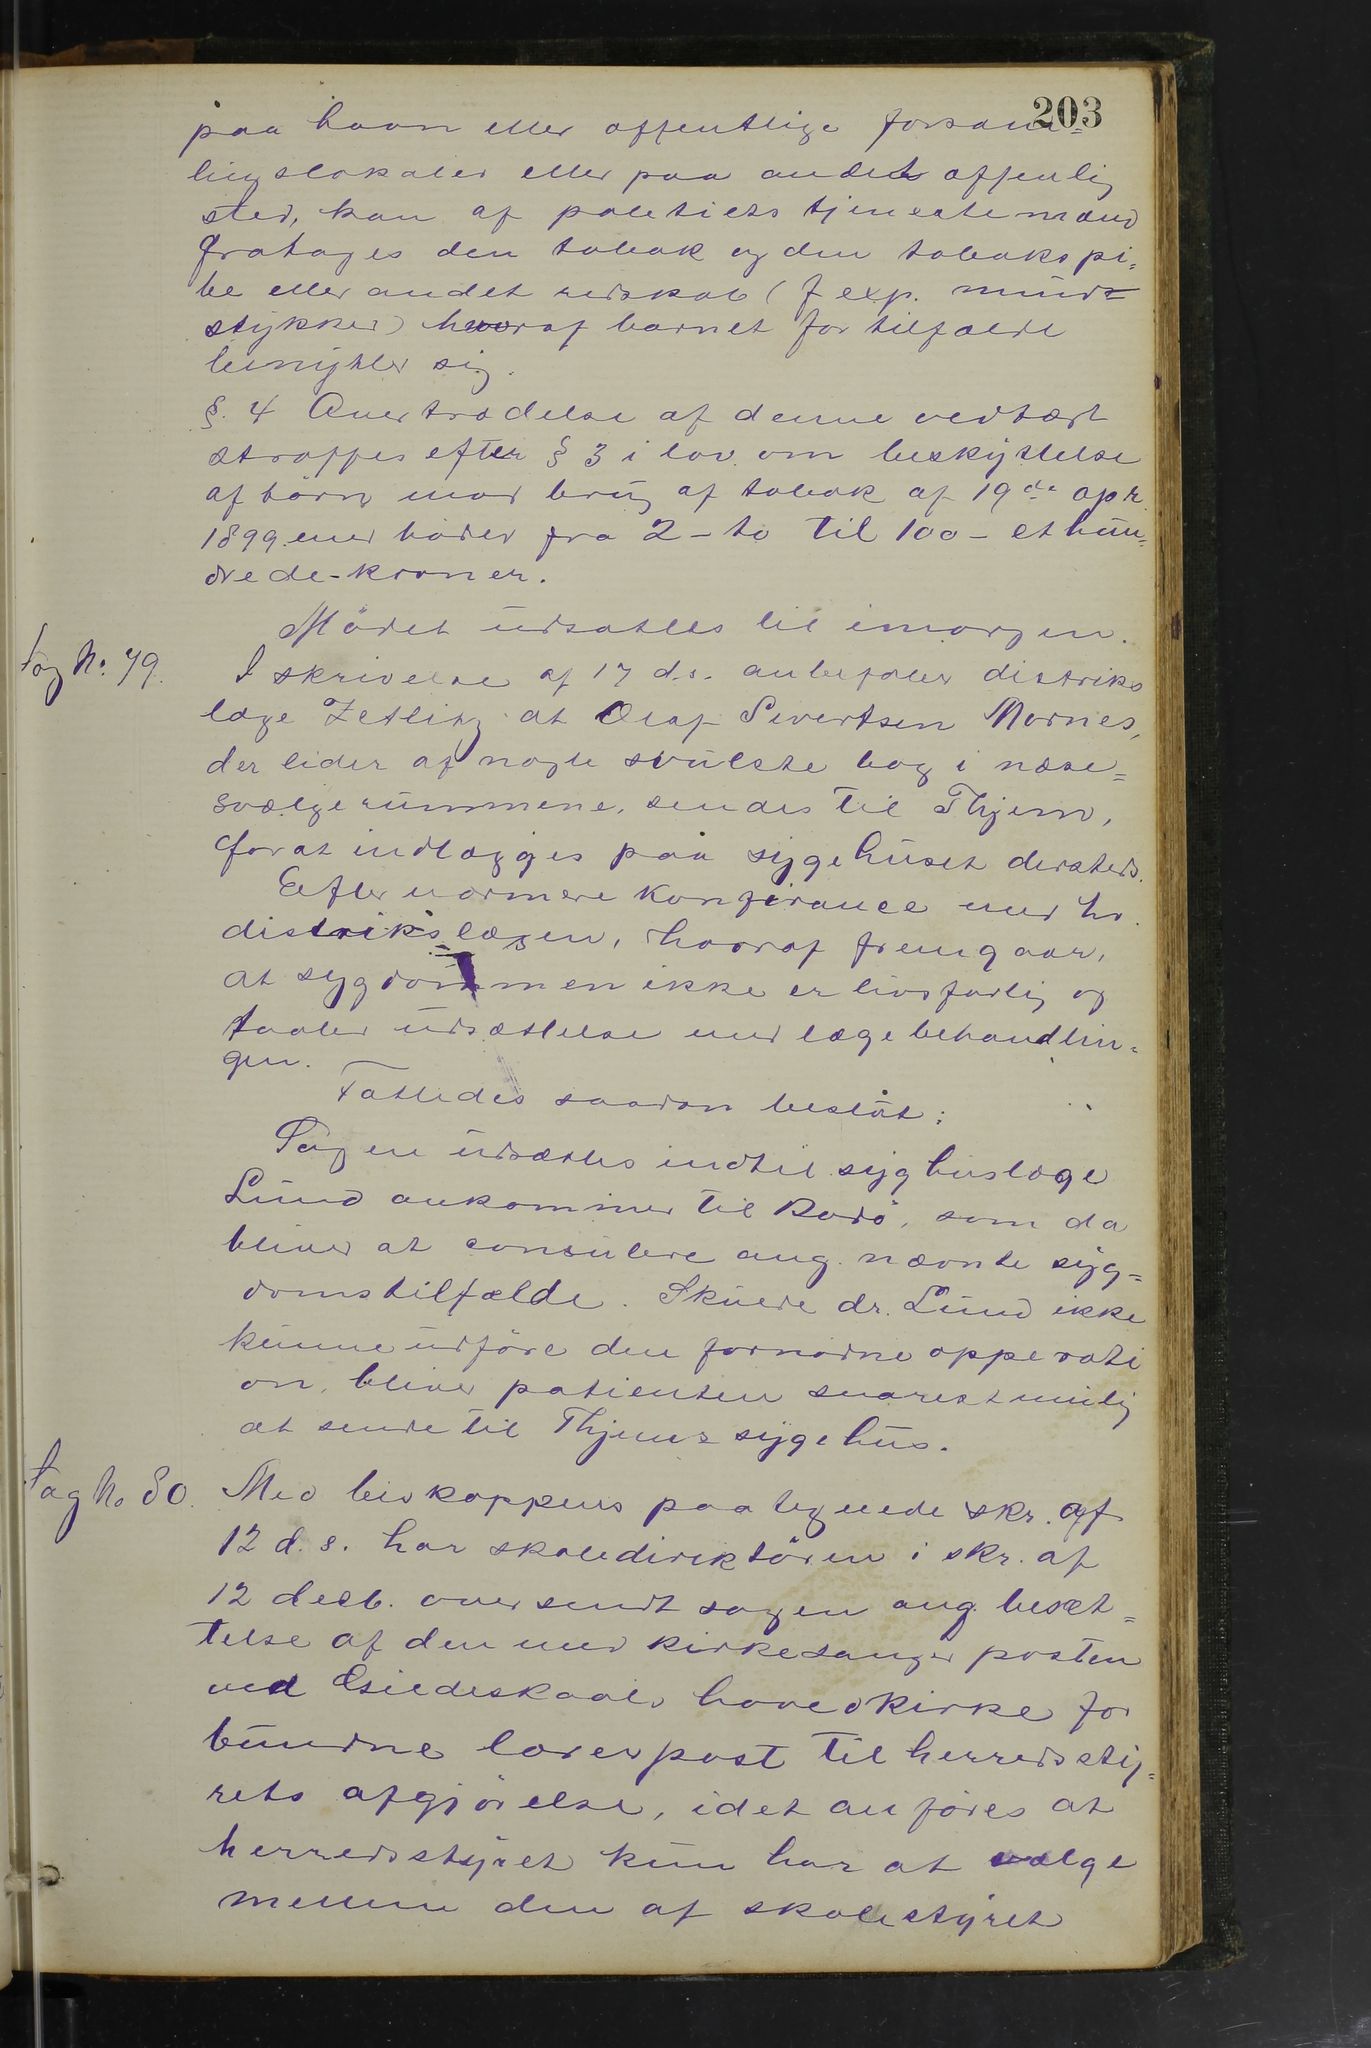 203
paa havn eller offentlige forsam=
lingslokaler eller paa andet offenlig
sted, kan af politiets tjenestemænd
fratages den tabak og den tobakspi=
be eller andet redskab (f exp. mund=
stykker) hvoraf barnet for tilfælde
benytter sig.
§. 4 Overtrædelse af denne vedtægt
straffes efter § 3 i lov om beskyttelse
af börn mod brug af tobak af 19de apr.
1899 med böder fra 2 - to til 100 - et hun=
drede-kroner.
Mödet udsattes til imorgen.
Sag No. 79.
I skrivelse af 17 d.s. anbefaler distriks
læge Zetlitz at Olaf Sivertsen Mornes,
der lider af nogle svulste bag i næse=
svælgerummene, sendes til Thjem,
forat indlægges paa sygehuset dersteds.
Efter nærmere konferance med hr.
distrikslægen, hvoraf fremgaar,
at sygdommen ikke er livsfarlig og
taaler udsættelse med lægebehandlin=
gen.
Fattedes saadan beslut:
Sagen udsættes indtil syghuslæge
Lund ankommer til Bodö, som da
bliver at consulere ang. nævnte syg=
domstilfælde. Skulde dr. Lund ikke
kunne udföre den fornödne opperati
on, bliver patienten snarest mulig
at sende til Thjems sygehus.
Sag No 80.
Med biskoppens paategnede skr. af
12 d.s. har skoledirektören i skr. af
12 decb. oversendt sagen ang. besæt=
telse af den med kirkesanger posten
ved Gildeskaals hovedkirke for
bundne lærerpost til herredssty=
rets afgjörelse, idet anföres at
herredsstyret kun har at vælge
mellem den af skolestyret